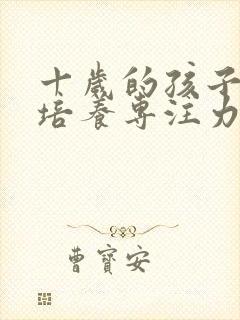 十歲的孩子
培養專注力
曹寶安